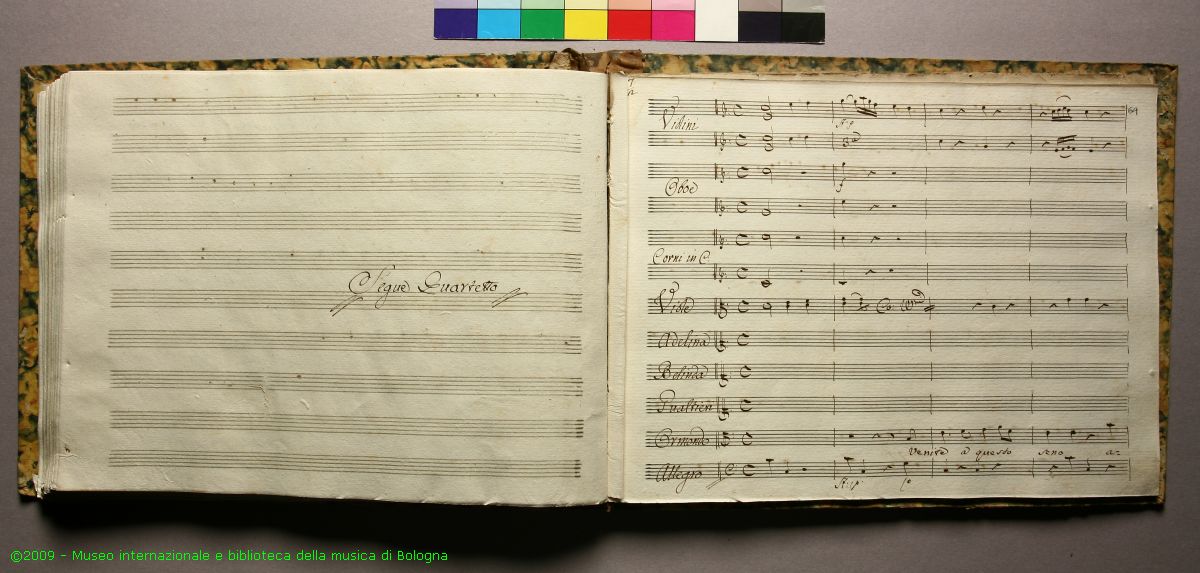 Segue Quartetto
69
Violini
Oboe
Corni in C.
Viole
Adelina
Belinda
Gualtieri
Ormondo
Venite a questo seno a-
Allegro
©2009 - Museo internazionale e biblioteca della musica di Bologna